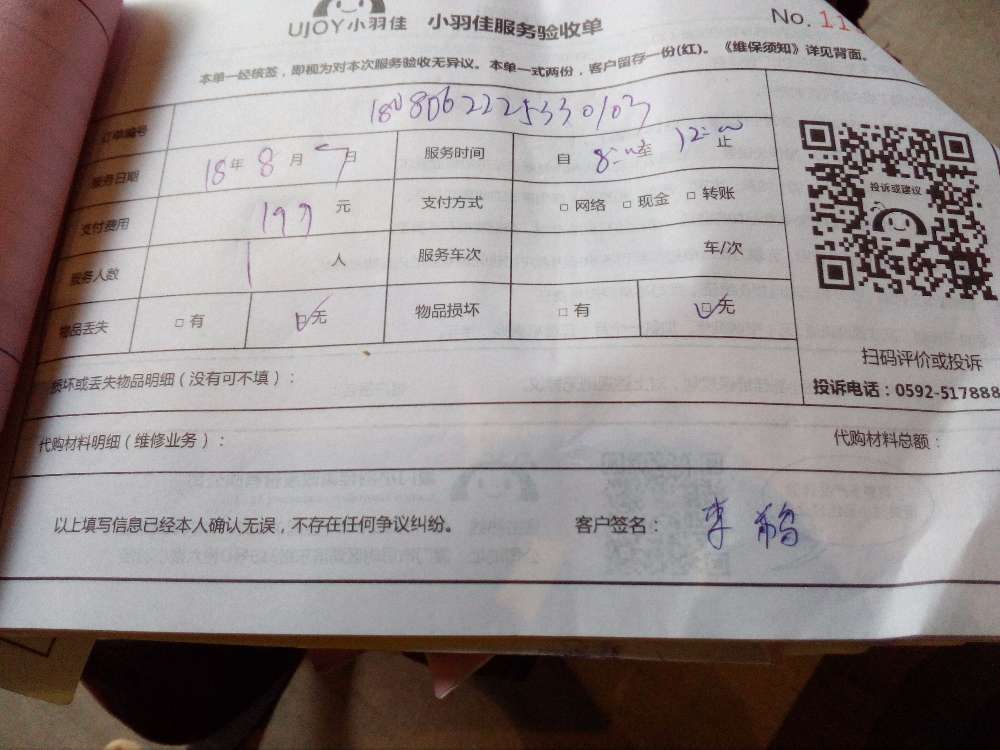 UJOY小羽佳 小羽佳服务验收单 No. 11
本单一经核签，即视为对本次服务验收无异议。本单一式两份，客户留存一份(红)。《维保须知》详见背面。
订单编号 1808062225330103
服务日期 18年 8月 7日 服务时间 自 8:00至 12:00止
支付费用 199 元 支付方式 □ 网络 □ 现金 □ 转账
服务人数 1 人 服务车次 车/次
物品丢失 □ 有 ☑无 物品损坏 □ 有 ☑无
投诉或建议
扫码评价或投诉
损坏或丢失物品明细（没有可不填）：
投诉电话：0592-517888
代购材料明细（维修业务）： 代购材料总额：
以上填写信息已经本人确认无误，不存在任何争议纠纷。 客户签名： 李